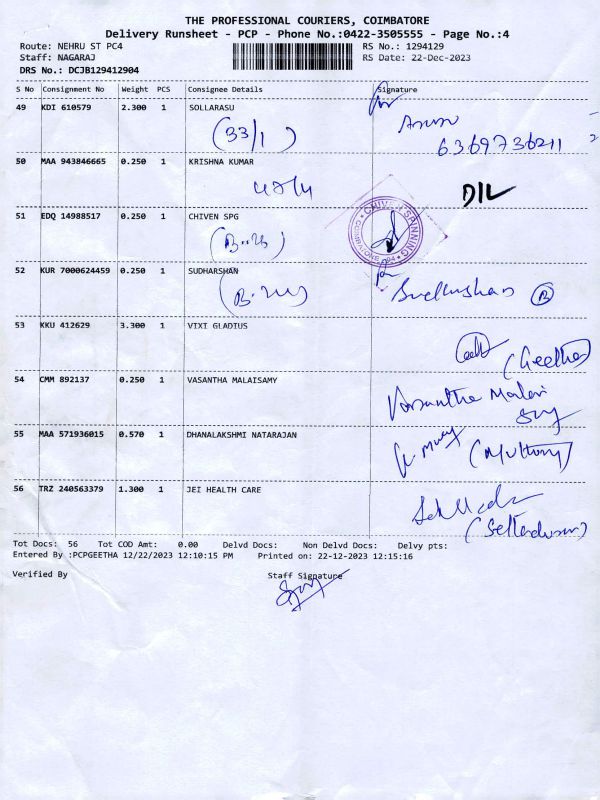 THE PROFESSIONAL COURIERS, COIMBATORE
Delivery Runsheet - PCP - Phone No.:0422-3505555 - Page No.:4
Route: NEHRU ST PC4 RS No.: 1294129
Staff: NAGARAJ RS Date: 22-Dec-2023
DRS No.: DCJB129412904
S No Consignment No Weight PCS Consignee Details Signature
49 KDI 610579 2.300 1 SOLLARASU
(33/1)
6369736211
50 MAA 943846665 0.250 1 KRISHNA KUMAR
D/L
51 EDQ 14988517 0.250 1 CHIVEN SPG
CHIVEN SPINNING
52 KUR 7000624459 0.250 1 SUDHARSHAN
Sudharshan
53 KKU 412629 3.300 1 VIXI GLADIUS
(Geetha)
54 CMM 892137 0.250 1 VASANTHA MALAISAMY
Vasantha Malai
55 MAA 571936015 0.570 1 DHANALAKSHMI NATARAJAN
56 TRZ 240563379 1.300 1 JEI HEALTH CARE
Tot Docs: 56 Tot COD Amt: 0.00 Delvd Docs: Non Delvd Docs: Delvy pts:
Entered By :PCPGEETHA 12/22/2023 12:10:15 PM Printed on: 22-12-2023 12:15:16
Verified By Staff Signature